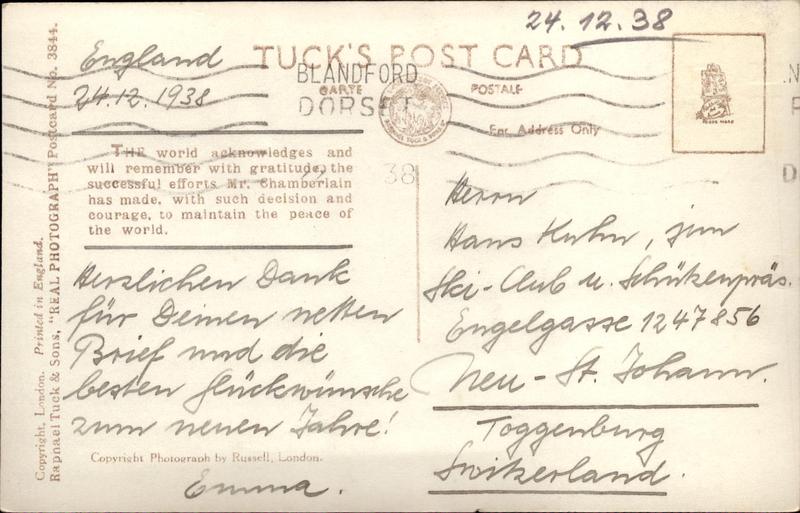 24.12.38
England
24.12.1938
TUCK'S POST CARD
CARTE POSTALE
BLANDFORD
DORSET
38
For Address Only
TRADE MARK
THE world acknowledges and
will remember with gratitude, the
successful efforts Mr. Chamberlain
has made, with such decision and
courage, to maintain the peace of
the world.
Herzlichen Dank
für Deinen netten
Brief und die
besten Glückwünsche
zum neuen Jahre!
Copyright Photograph by Russell, London.
Emma.
Herrn
Hans Kuhn, jun
Ski-Club u. Schützenpräs.
Engelgasse 1247856
Neu-St. Johann.
Toggenburg
Switzerland.
Copyright, London. Printed in England.
Raphael Tuck & Sons, "REAL PHOTOGRAPH" Postcard No. 3844.